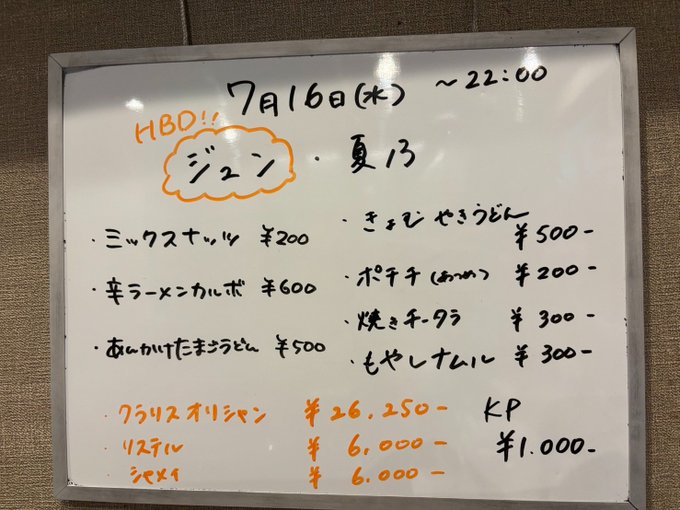 7月16日(水) ~22:00
HBD!!
ジュン ・ 夏乃
・ミックスナッツ ¥200
・辛ラーメンカルボ ¥600
・あんかけたまごうどん ¥500
・きょむ やきうどん ¥500-
・ポテチ (あつめ) ¥200-
・焼きチータラ ¥300-
・もやしナムル ¥300-
・クラリス オリシャン ¥26,250-
・リステル ¥6,000-
・シャメイ ¥6,000-
KP
¥1,000-